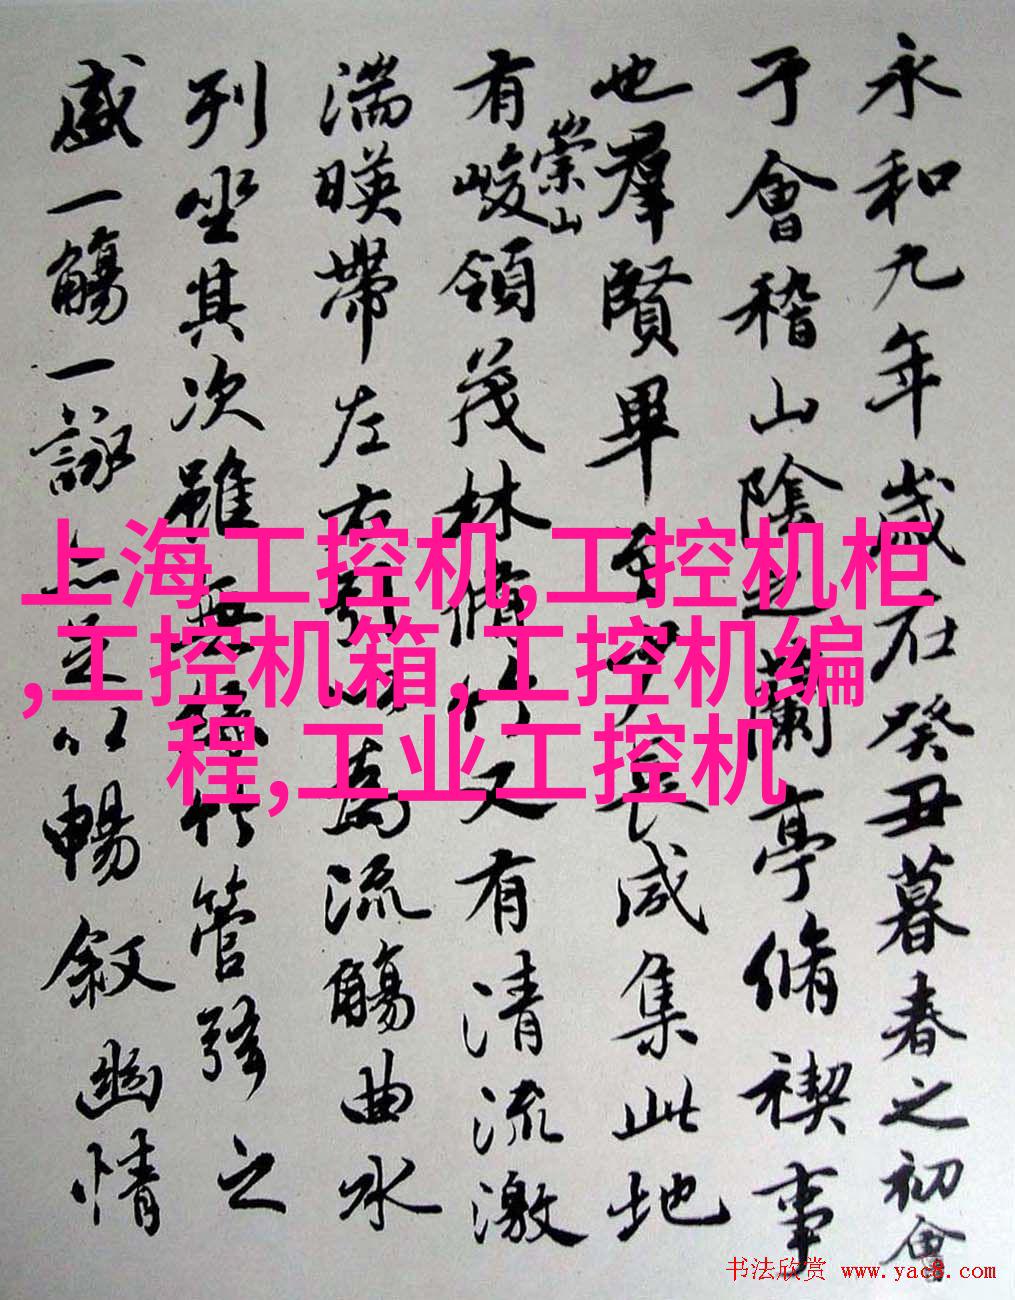 永和九年歲在癸丑暮春之初會
于會稽山陰之蘭亭脩稧事
也羣賢畢至少長咸集此地
有崇山峻領茂林脩竹又有清流激
湍暎帶左右引以為流觴曲水
列坐其次雖無絲竹管弦之
盛一觴一詠亦足以暢敘幽情
上海工控机,工控机柜
,工控机箱,工控机编
程,工业工控机
书法欣赏 www.yac8.com